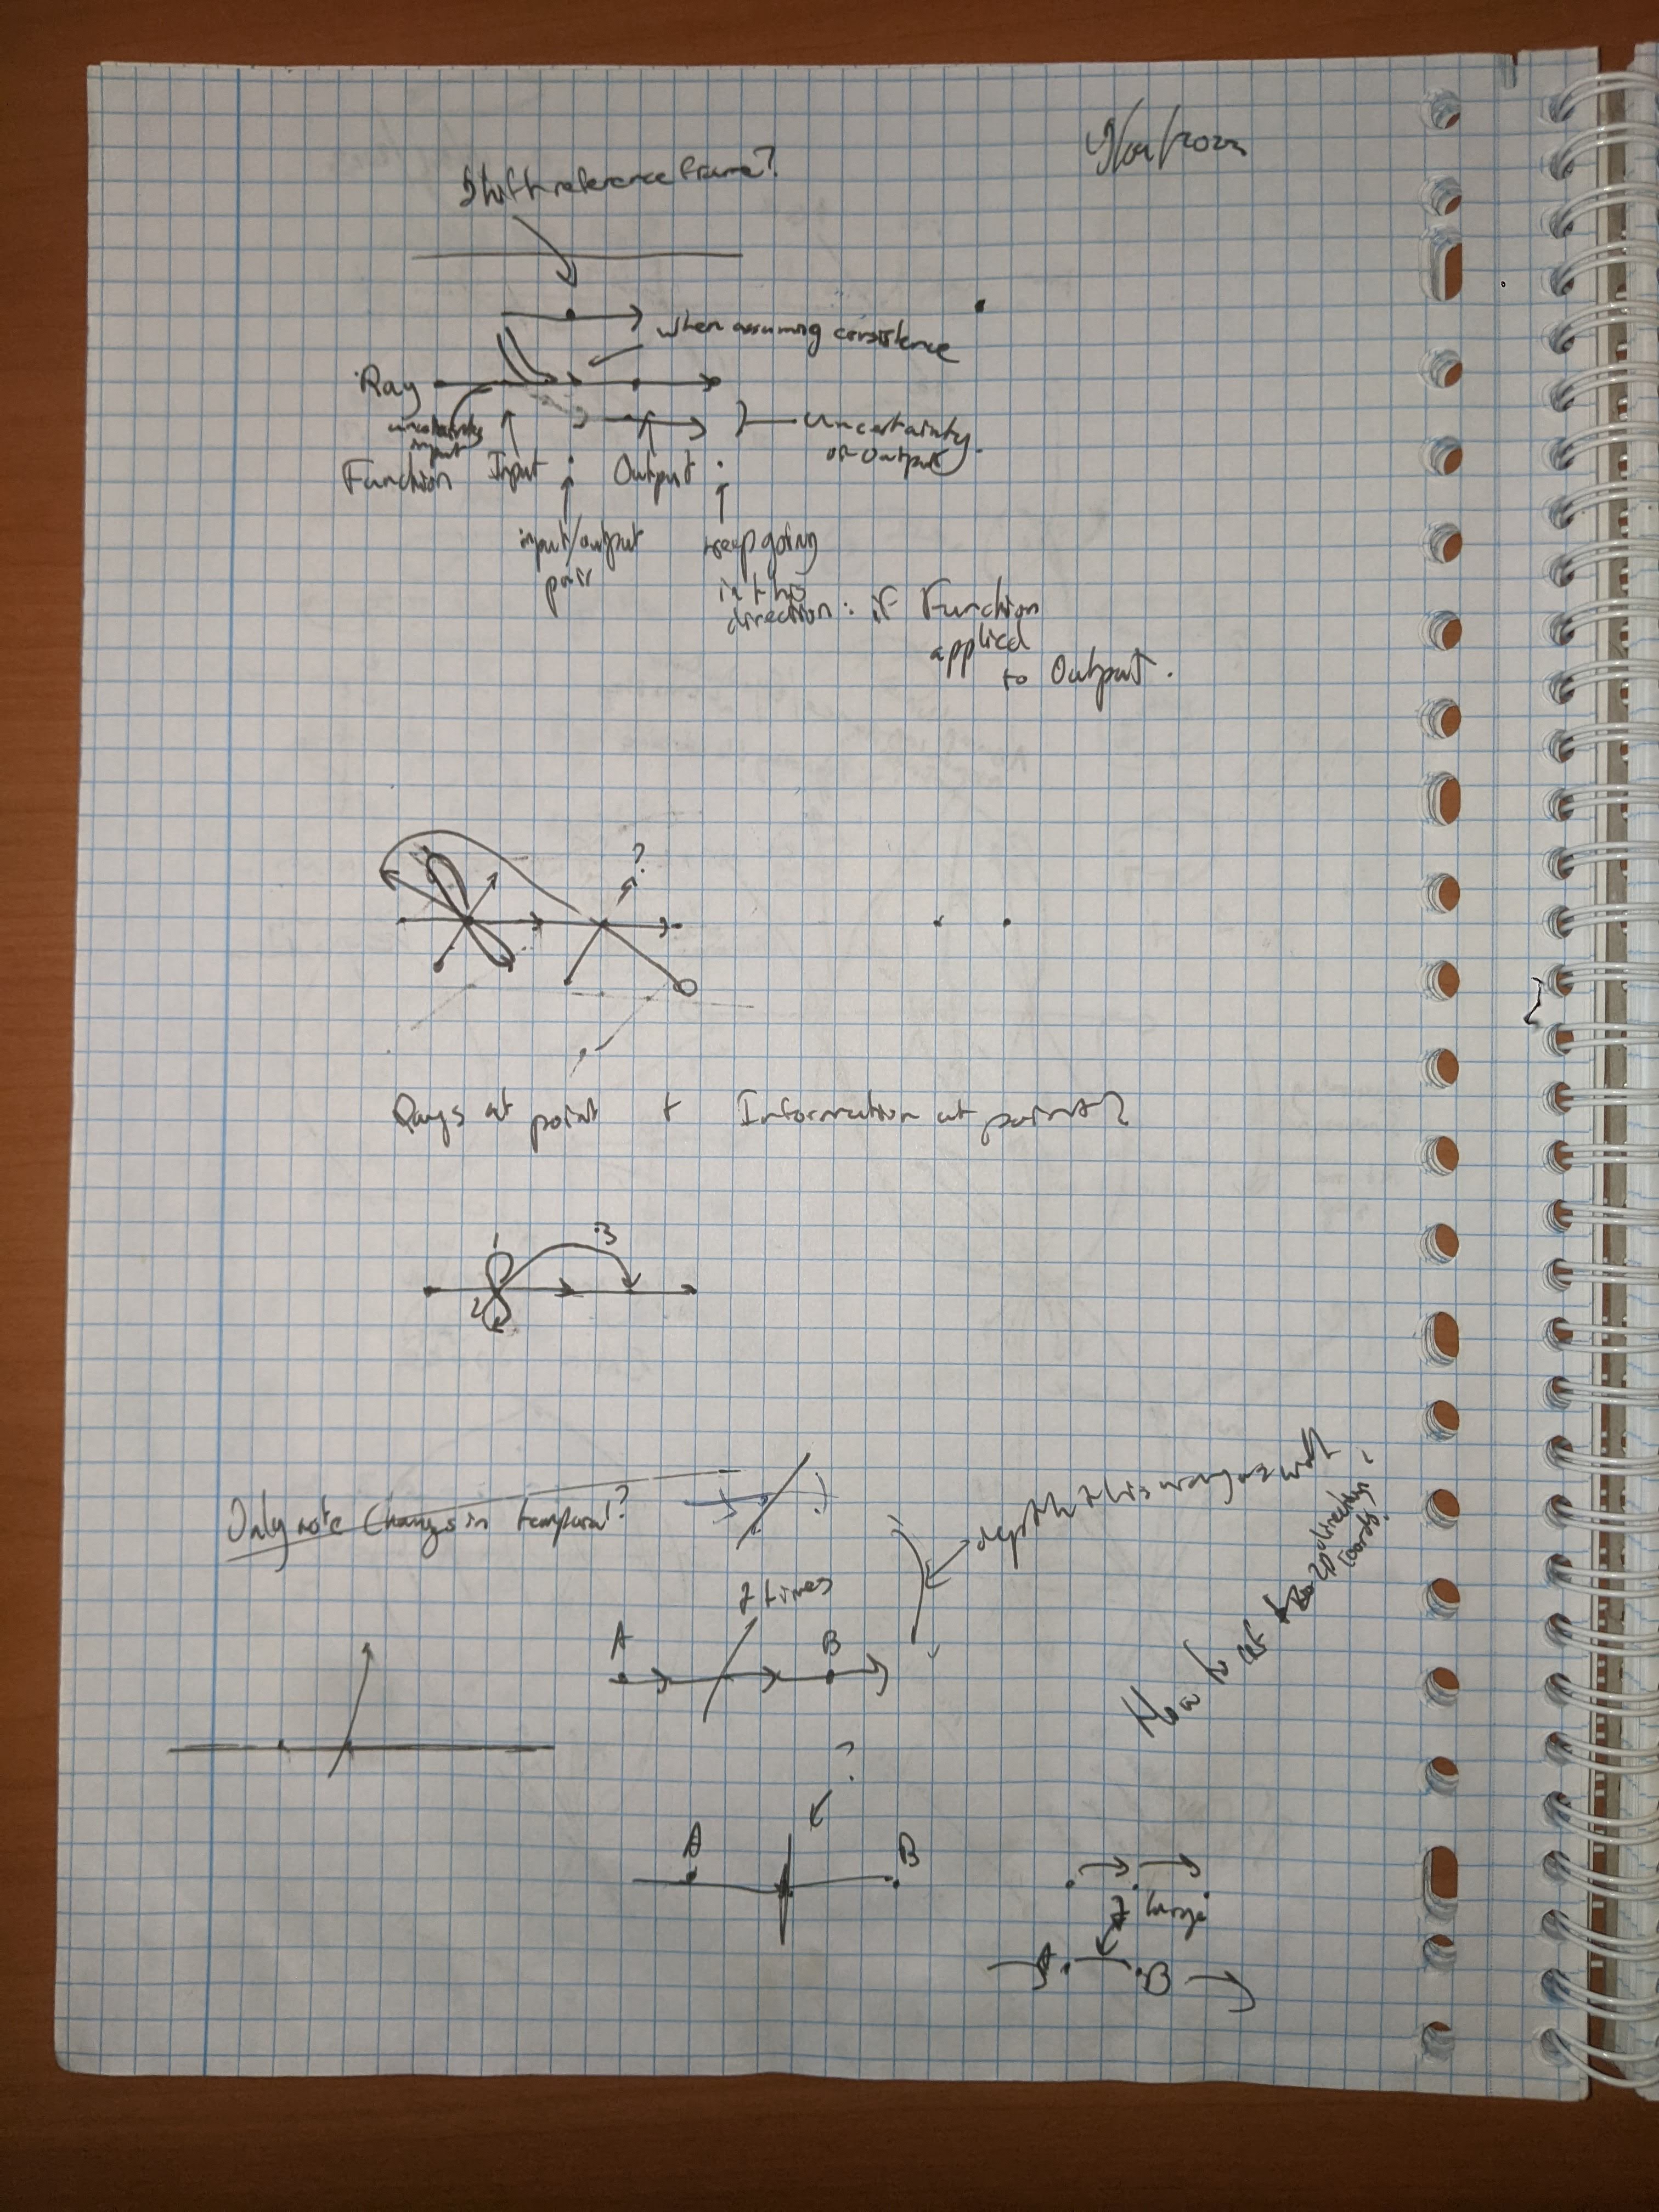 Shift reference frame?
when assuming consistence
Ray
uncertainty
input
Uncertainty
of output
Function Input : Output :
input/output
pair
keep going
in this
direction : if Function
applied
to Output.
?
Rays at point + Information at point?
1
3
2
Only note changes in temporal?
depth this way as well
How to get
2D
coords
? times
A
B
?
A
B
? large
A
B